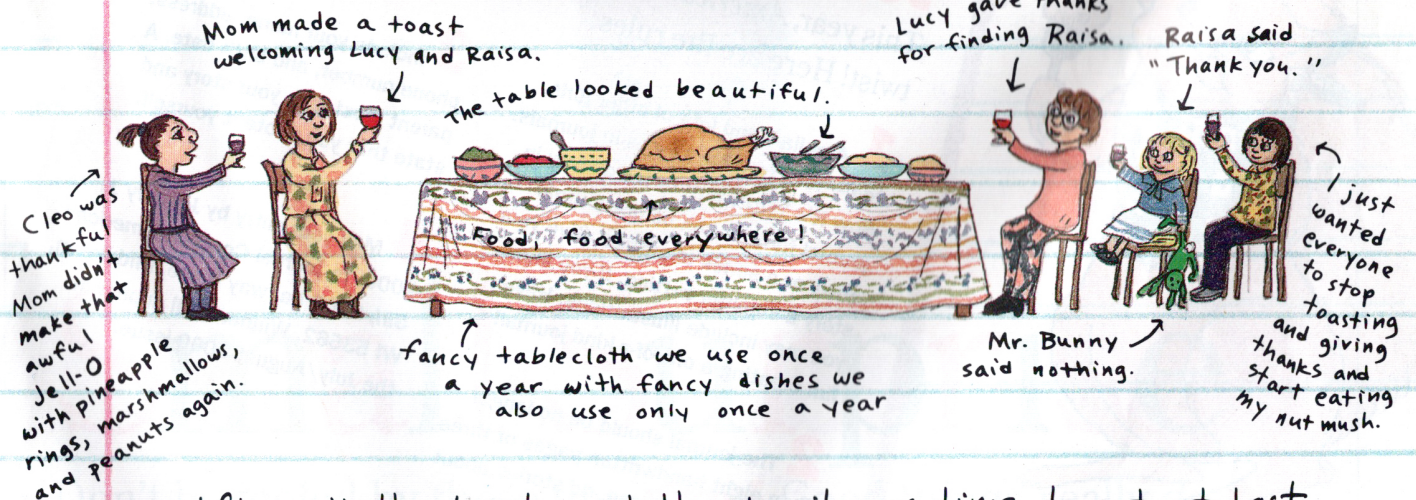 Mom made a toast
welcoming Lucy and Raisa.
The table looked beautiful.
Lucy gave thanks
for finding Raisa.
Raisa said
"Thank you."
Cleo was
thankful
Mom didn't
make that
awful
Jell-O
with pineapple
rings, marshmallows,
and peanuts again.
Food, food everywhere!
fancy tablecloth we use once
a year with fancy dishes we
also use only once a year
Mr. Bunny
said nothing.
I just
wanted
everyone
to stop
toasting
and giving
thanks and
start eating
my nut mush.